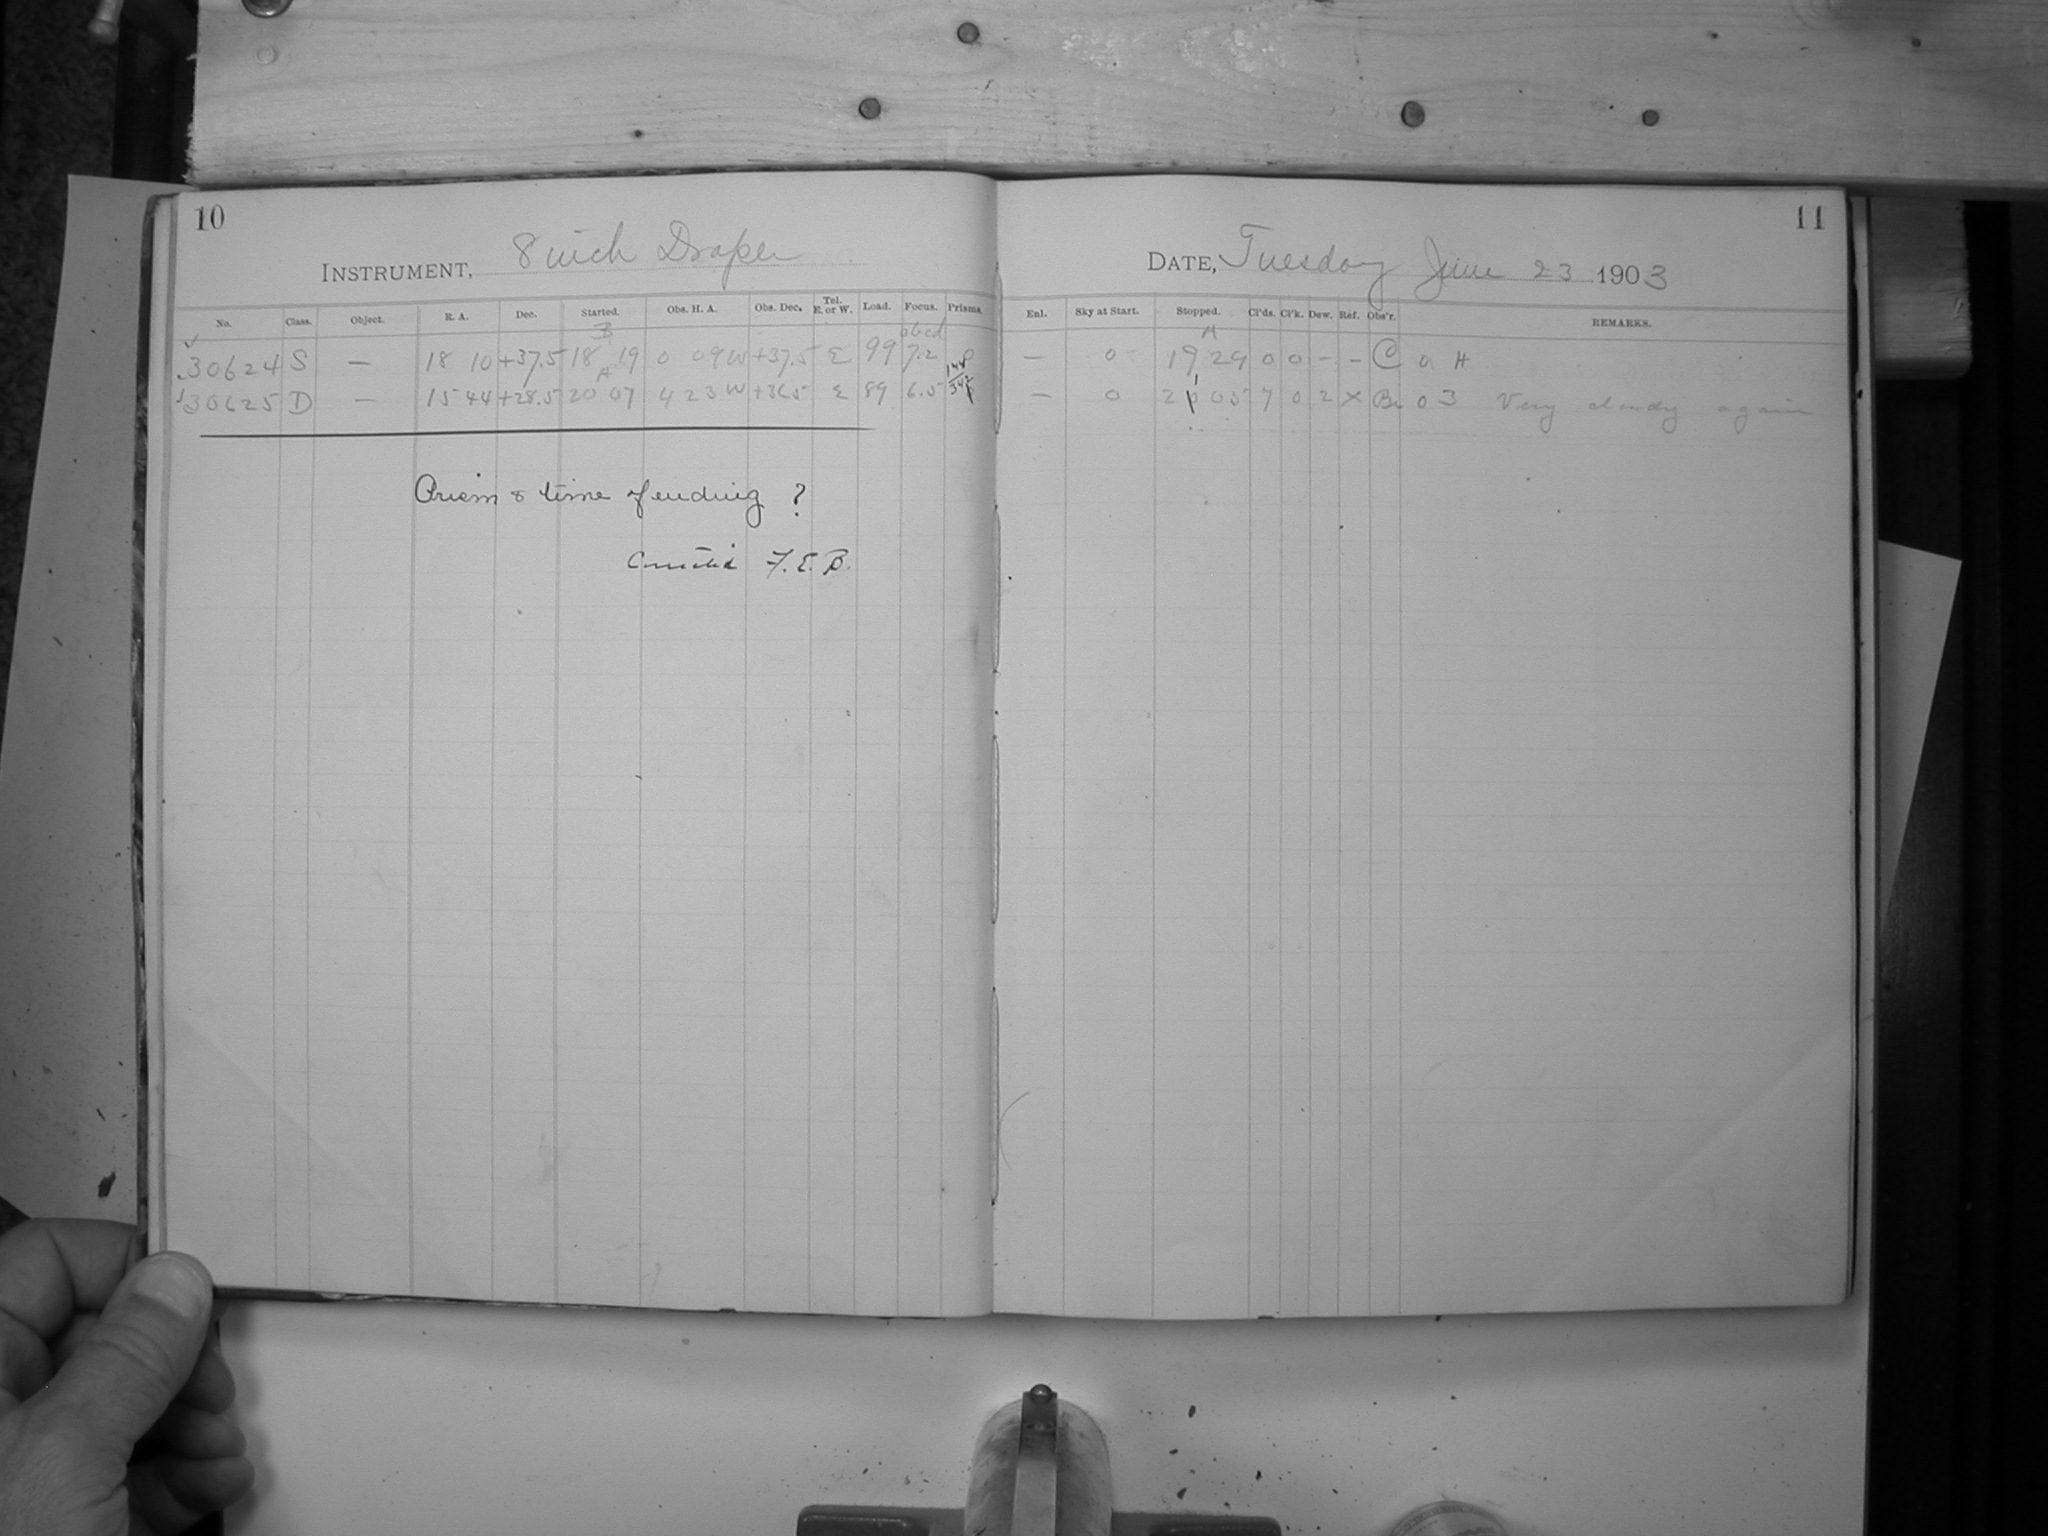 10
INSTRUMENT, 8 inch Draper
No. Class. Object. R. A. Dec. Started. Obs. H. A. Obs. Dec. Tel. E. or W. Load. Focus. Prisms.
B abcd
30624 S — 18 10 +37.5 18 19 0 09 W +37.5 E 99 7.2
A
30625 D — 15 44 +28.5 20 07 4 23 W E 89 6.5
Prism & time of ending ?
Corrected F. E. B.
11
DATE, Tuesday June 23 1903
Enl. Sky at Start. Stopped. Cl'ds. Cl'k. Dew. Ref. Obs'r. REMARKS.
A
— 0 19 29 0 0 - - C a H
— 0 21 05 7 0 2 X Br 0 3 Very cloudy again